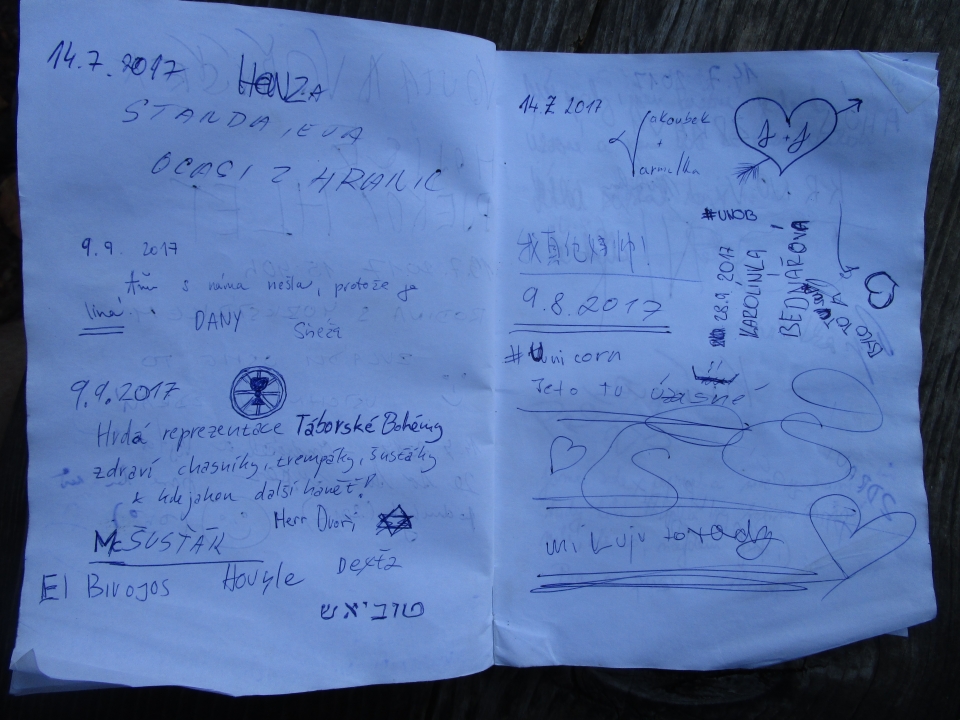 14.7.2017 HONZA
STANDA, EVA
OCASI Z HRANIC
9.9. 2017
s náma nešla, protože je
líná DANY
9.9.2017
Hrdá reprezentace Táborské Bohémy
zdraví chasníky, trempáky, šusťáky
další havěť!
Herr Dvořj
Mc ŠUSŤÁK
El Birojos Hovyle Dexťa
טוביאש
14.7 2017
Jakoubek
+
Jarmilka
J + J
#UNOB
28.9. 2017
KAROLÍNKA
BEDNÁŘOVÁ
9.8.2017
#Unicorn
Jeto tu úžasné
miluju to tady